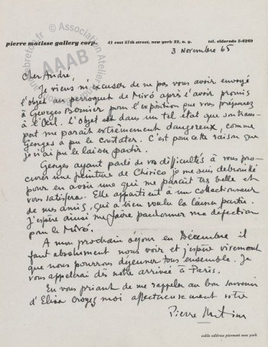 pierre matisse gallery corp. 41 east 57th street, new york 22, n. y. tel. eldorado 5-6269
3 Novembre 65
Cher André,
Je viens m'excuser de ne pas vous avoir envoyé
l'objet au perroquet de Miró après l'avoir promis
à Georges Bernier pour l'exposition que vous préparez
à l'Œil. L'objet est dans un tel état que son tran-
port me paraît extrêmement dangereux, comme
Georges a pu le constater. C'est pour cette raison que
je n'ai pu le laisser partir.
Georges ayant parlé de vos difficultés à vous pro-
curer une peinture de Chirico je me suis débrouillé
pour en avoir une qui me paraît très belle et
vous satisfera. Elle appartient à un collectionneur
de mes amis, qui a bien voulu la laisser partir.
J'espère ainsi me faire pardonner ma défection
pour le Miró.
A mon prochain séjour en Décembre il
faut absolument nous voir et j'espère vivement
que nous pourrons déjeuner tous ensemble. Je
vous appellerai dès notre arrivée à Paris.
En vous priant de me rappeler au bon souvenir
d'Elisa croyez moi affectueusement votre
Pierre Matisse